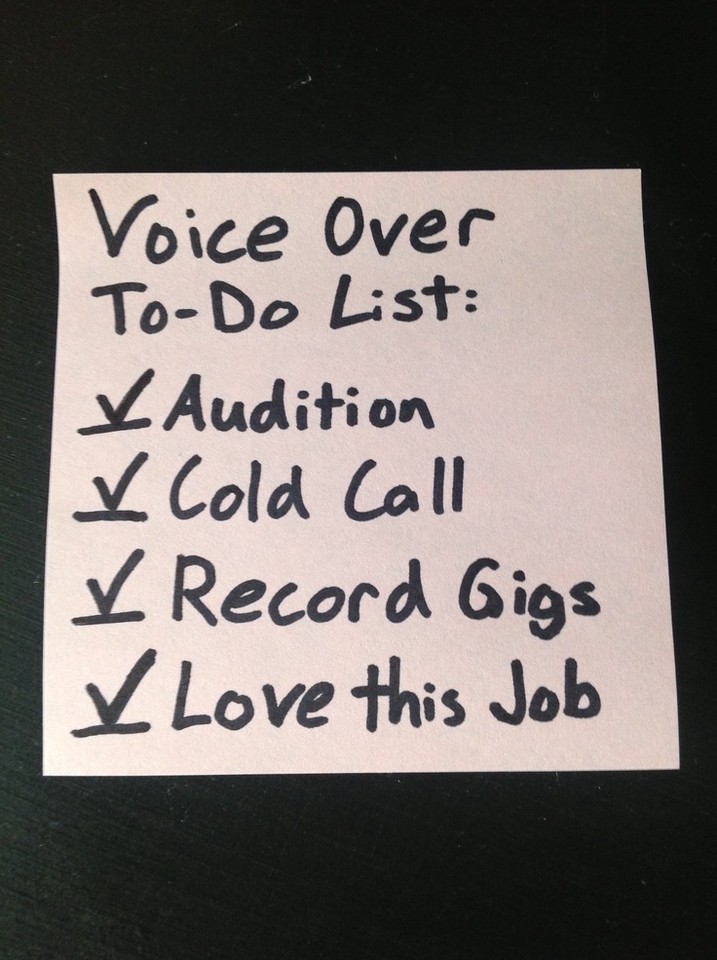 Voice Over
To-Do List:
✓ Audition
✓ Cold Call
✓ Record Gigs
✓ Love this Job